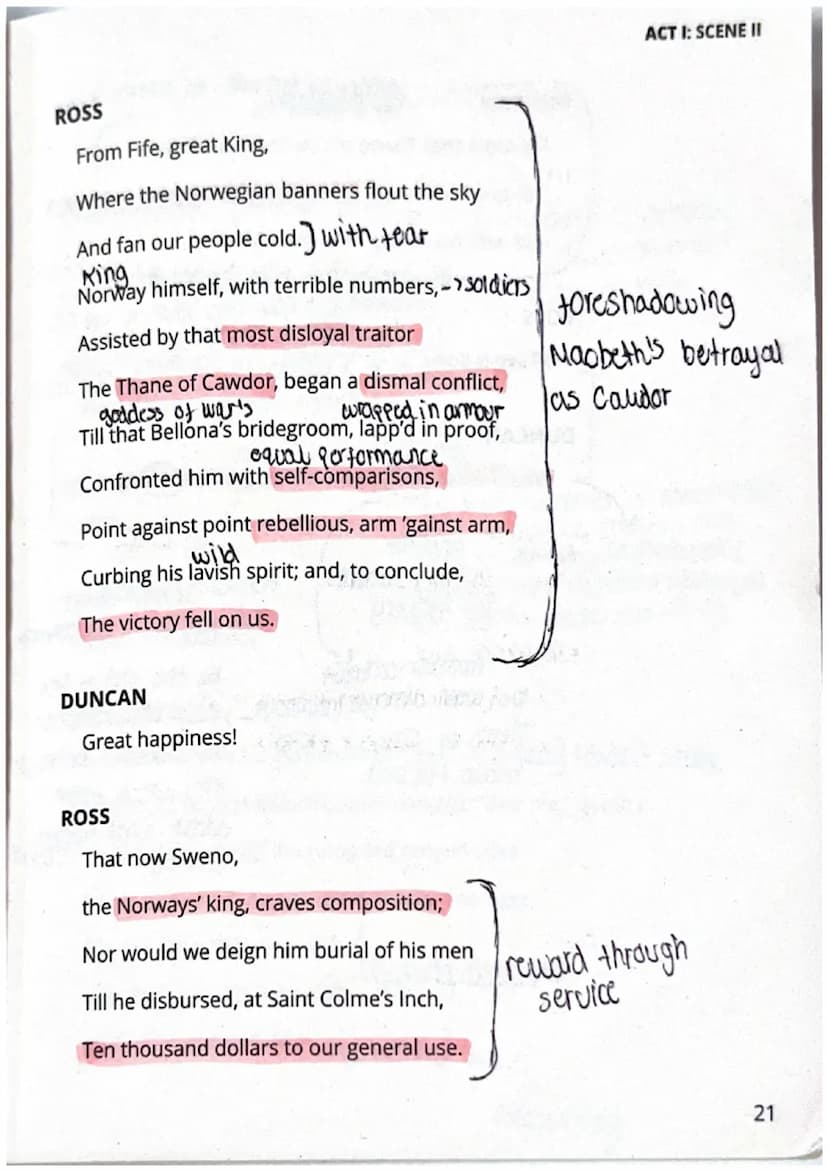 ACT I: SCENE II
ROSS
From Fife, great King,
Where the Norwegian banners flout the sky
And fan our people cold. ] with fear
King
Norway himself, with terrible numbers, -> soldiers
foreshadowing
Assisted by that most disloyal traitor
Macbeth's betrayal
The Thane of Cawdor, began a dismal conflict,
as Cawdor
goddess of war's wrapped in armour
Till that Bellona's bridegroom, lapp'd in proof,
equal performance
Confronted him with self-comparisons,
Point against point rebellious, arm 'gainst arm,
wild
Curbing his lavish spirit; and, to conclude,
The victory fell on us.
DUNCAN
Great happiness!
ROSS
That now Sweno,
the Norways' king, craves composition;
Nor would we deign him burial of his men
reward through
Till he disbursed, at Saint Colme's Inch,
service
Ten thousand dollars to our general use.
21